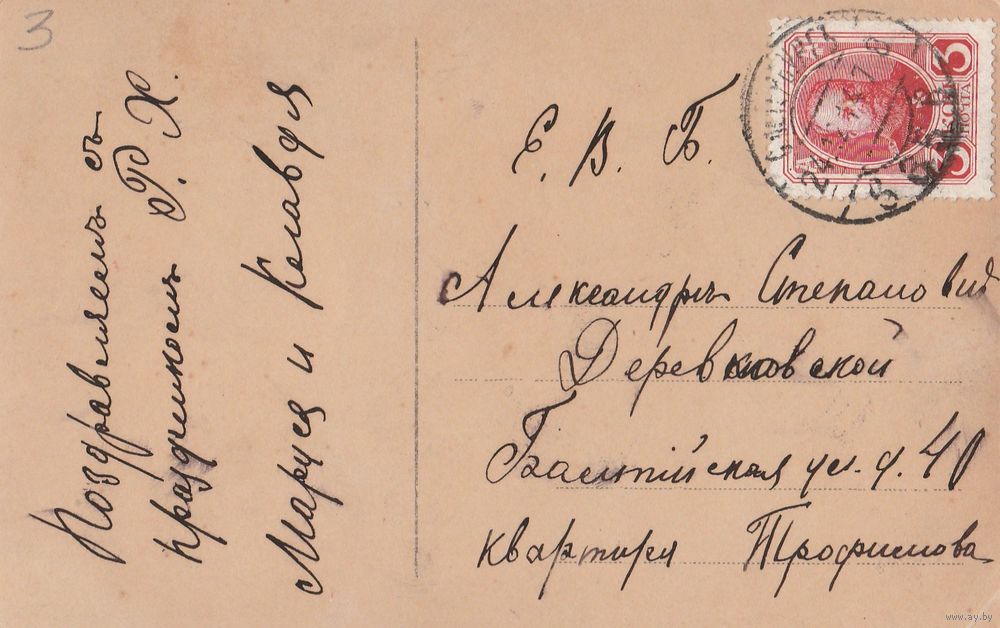 3
Поздравляемъ съ
праздникомъ Р. Х.
Маруся и Клавдія
Е. В. Б.
Александръ Степановна
Деревковской
Балтійская ул. д. 40
квартира Трофимова
3 КОП 3
ПОЧТА
www.ay.by